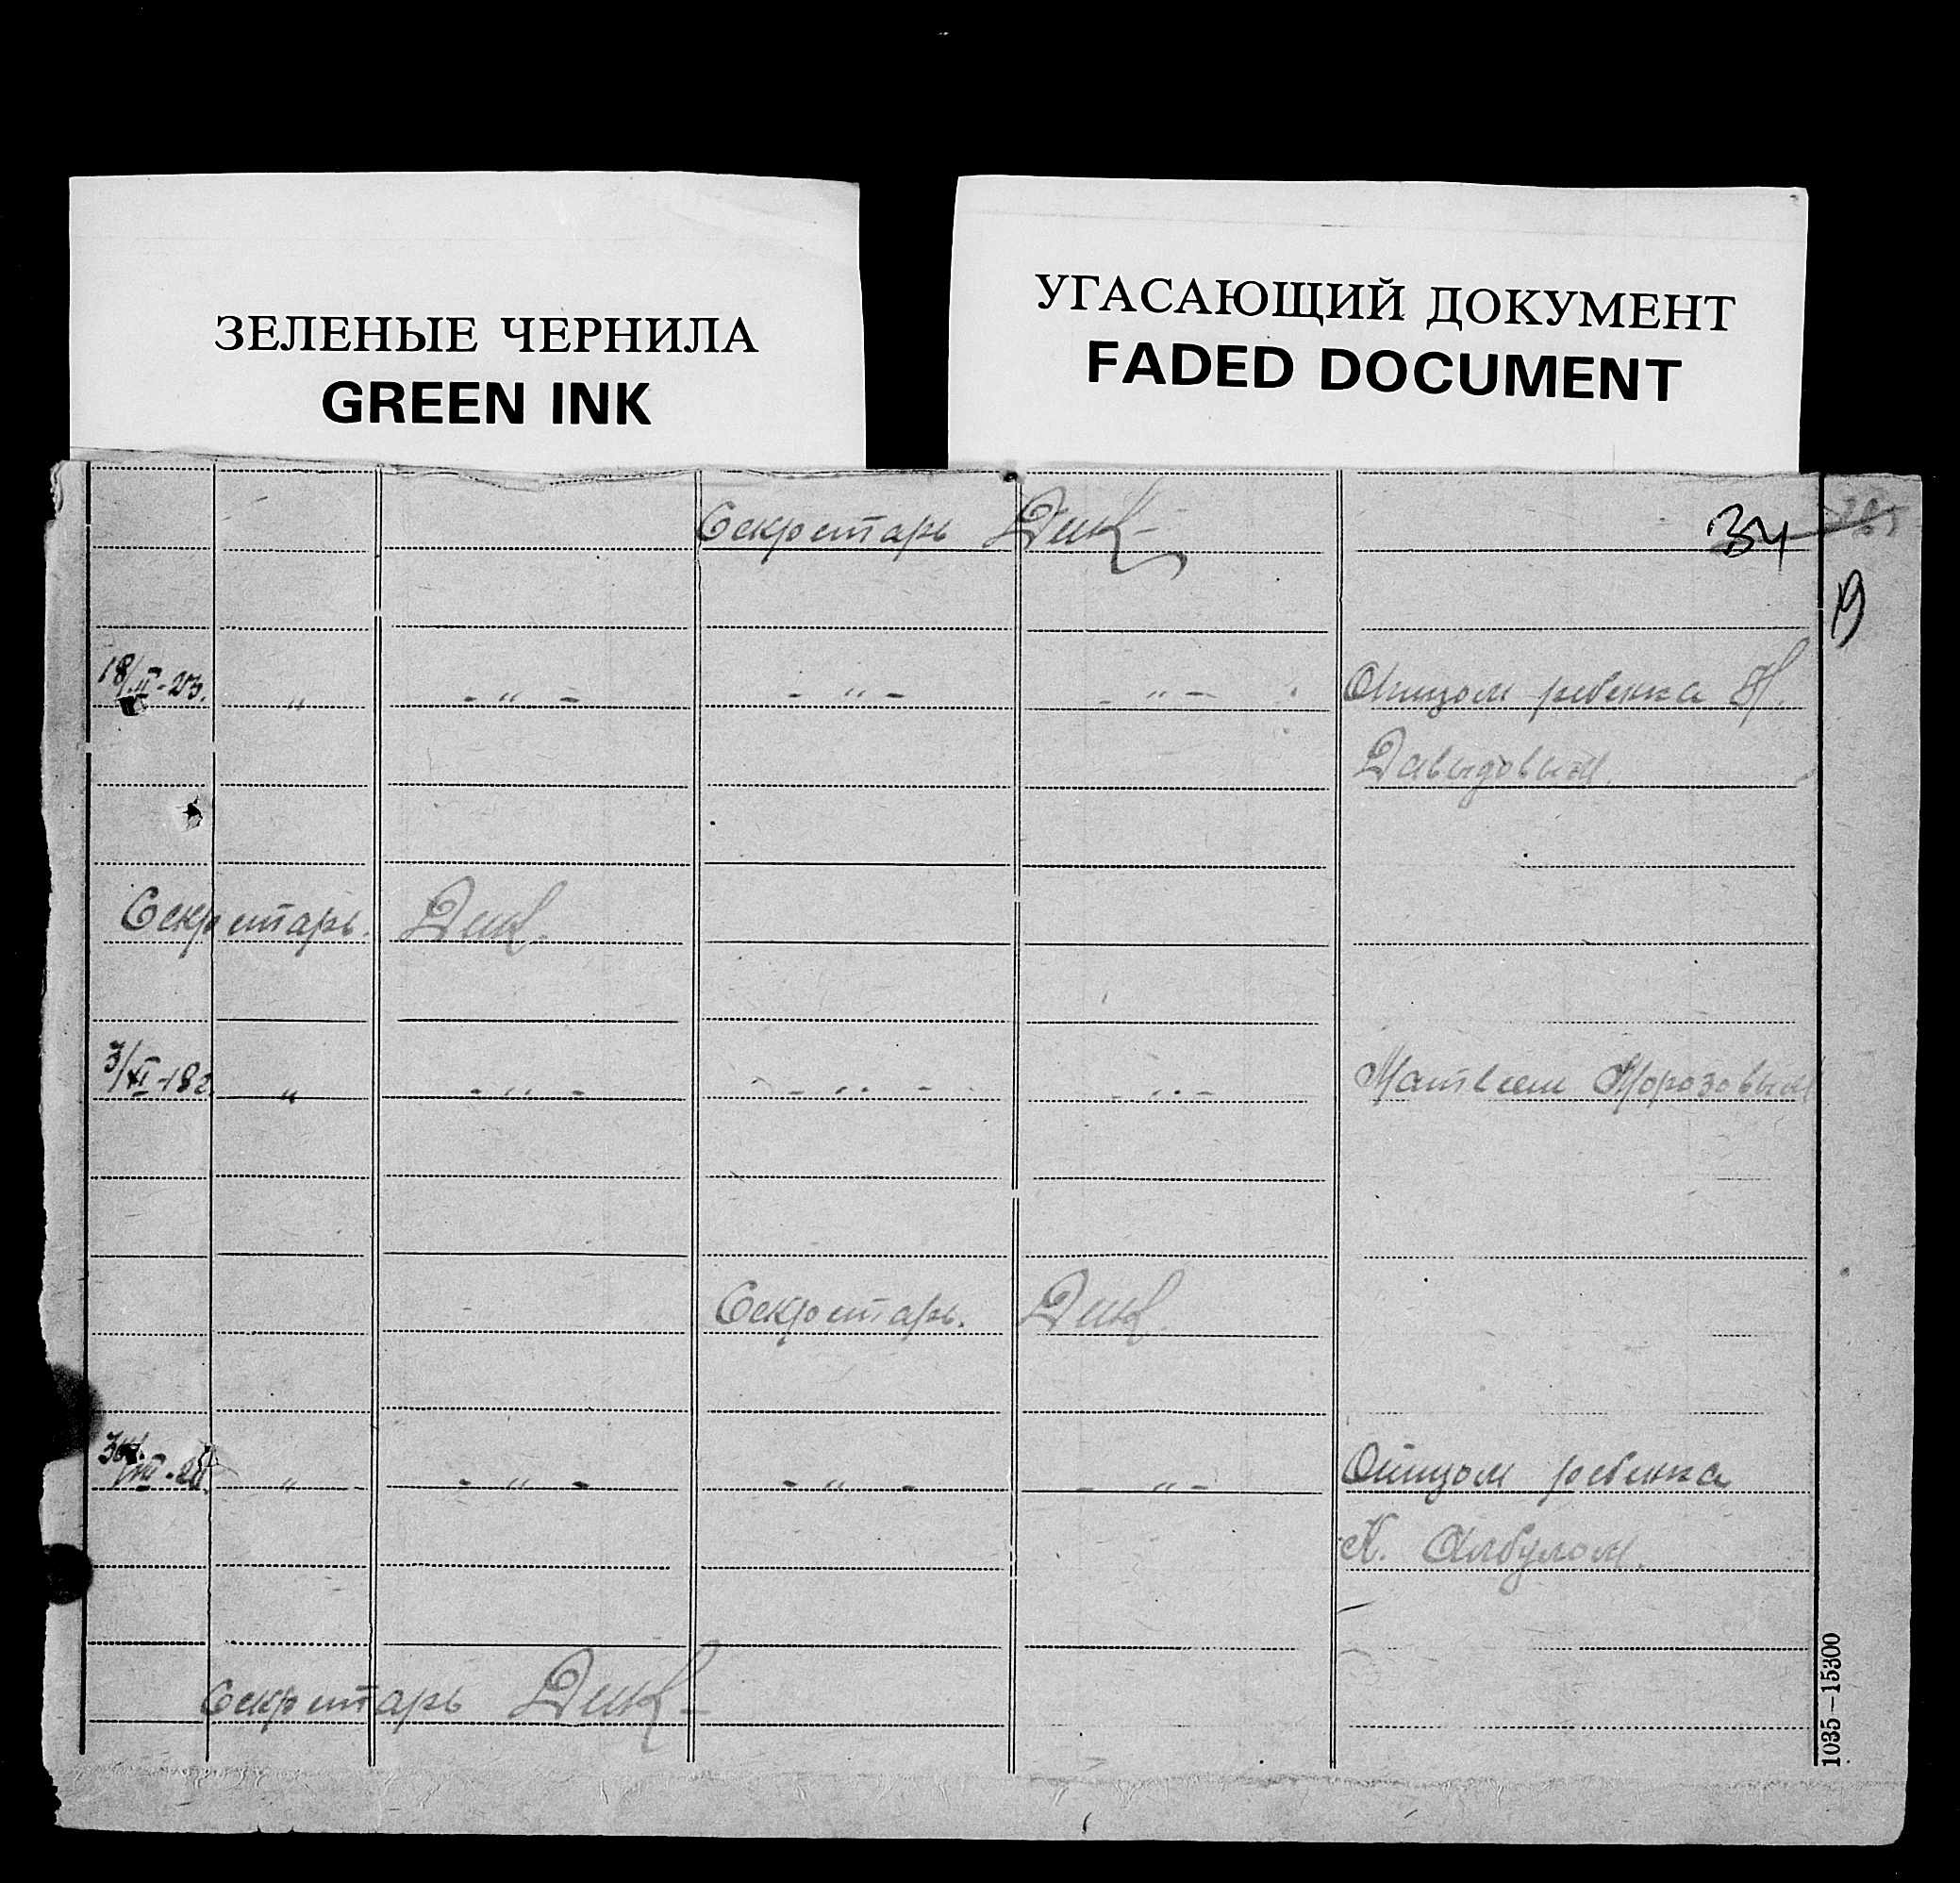 ЗЕЛЕНЫЕ ЧЕРНИЛА
GREEN INK
УГАСАЮЩИЙ ДОКУМЕНТ
FADED DOCUMENT
Секретарь Дик
34
19
18/II-23. " - " - - " - - " - Отцом ребенка Н.
Давыдовым.
Секретарь. Дик.
3/XI-182 " - " - - " - - " - Матвеем Морозовым
Секретарь. Дик.
" - " - - " - - " - Отцом ребенка
К. Албулом.
Секретарь Дик
1035—15300